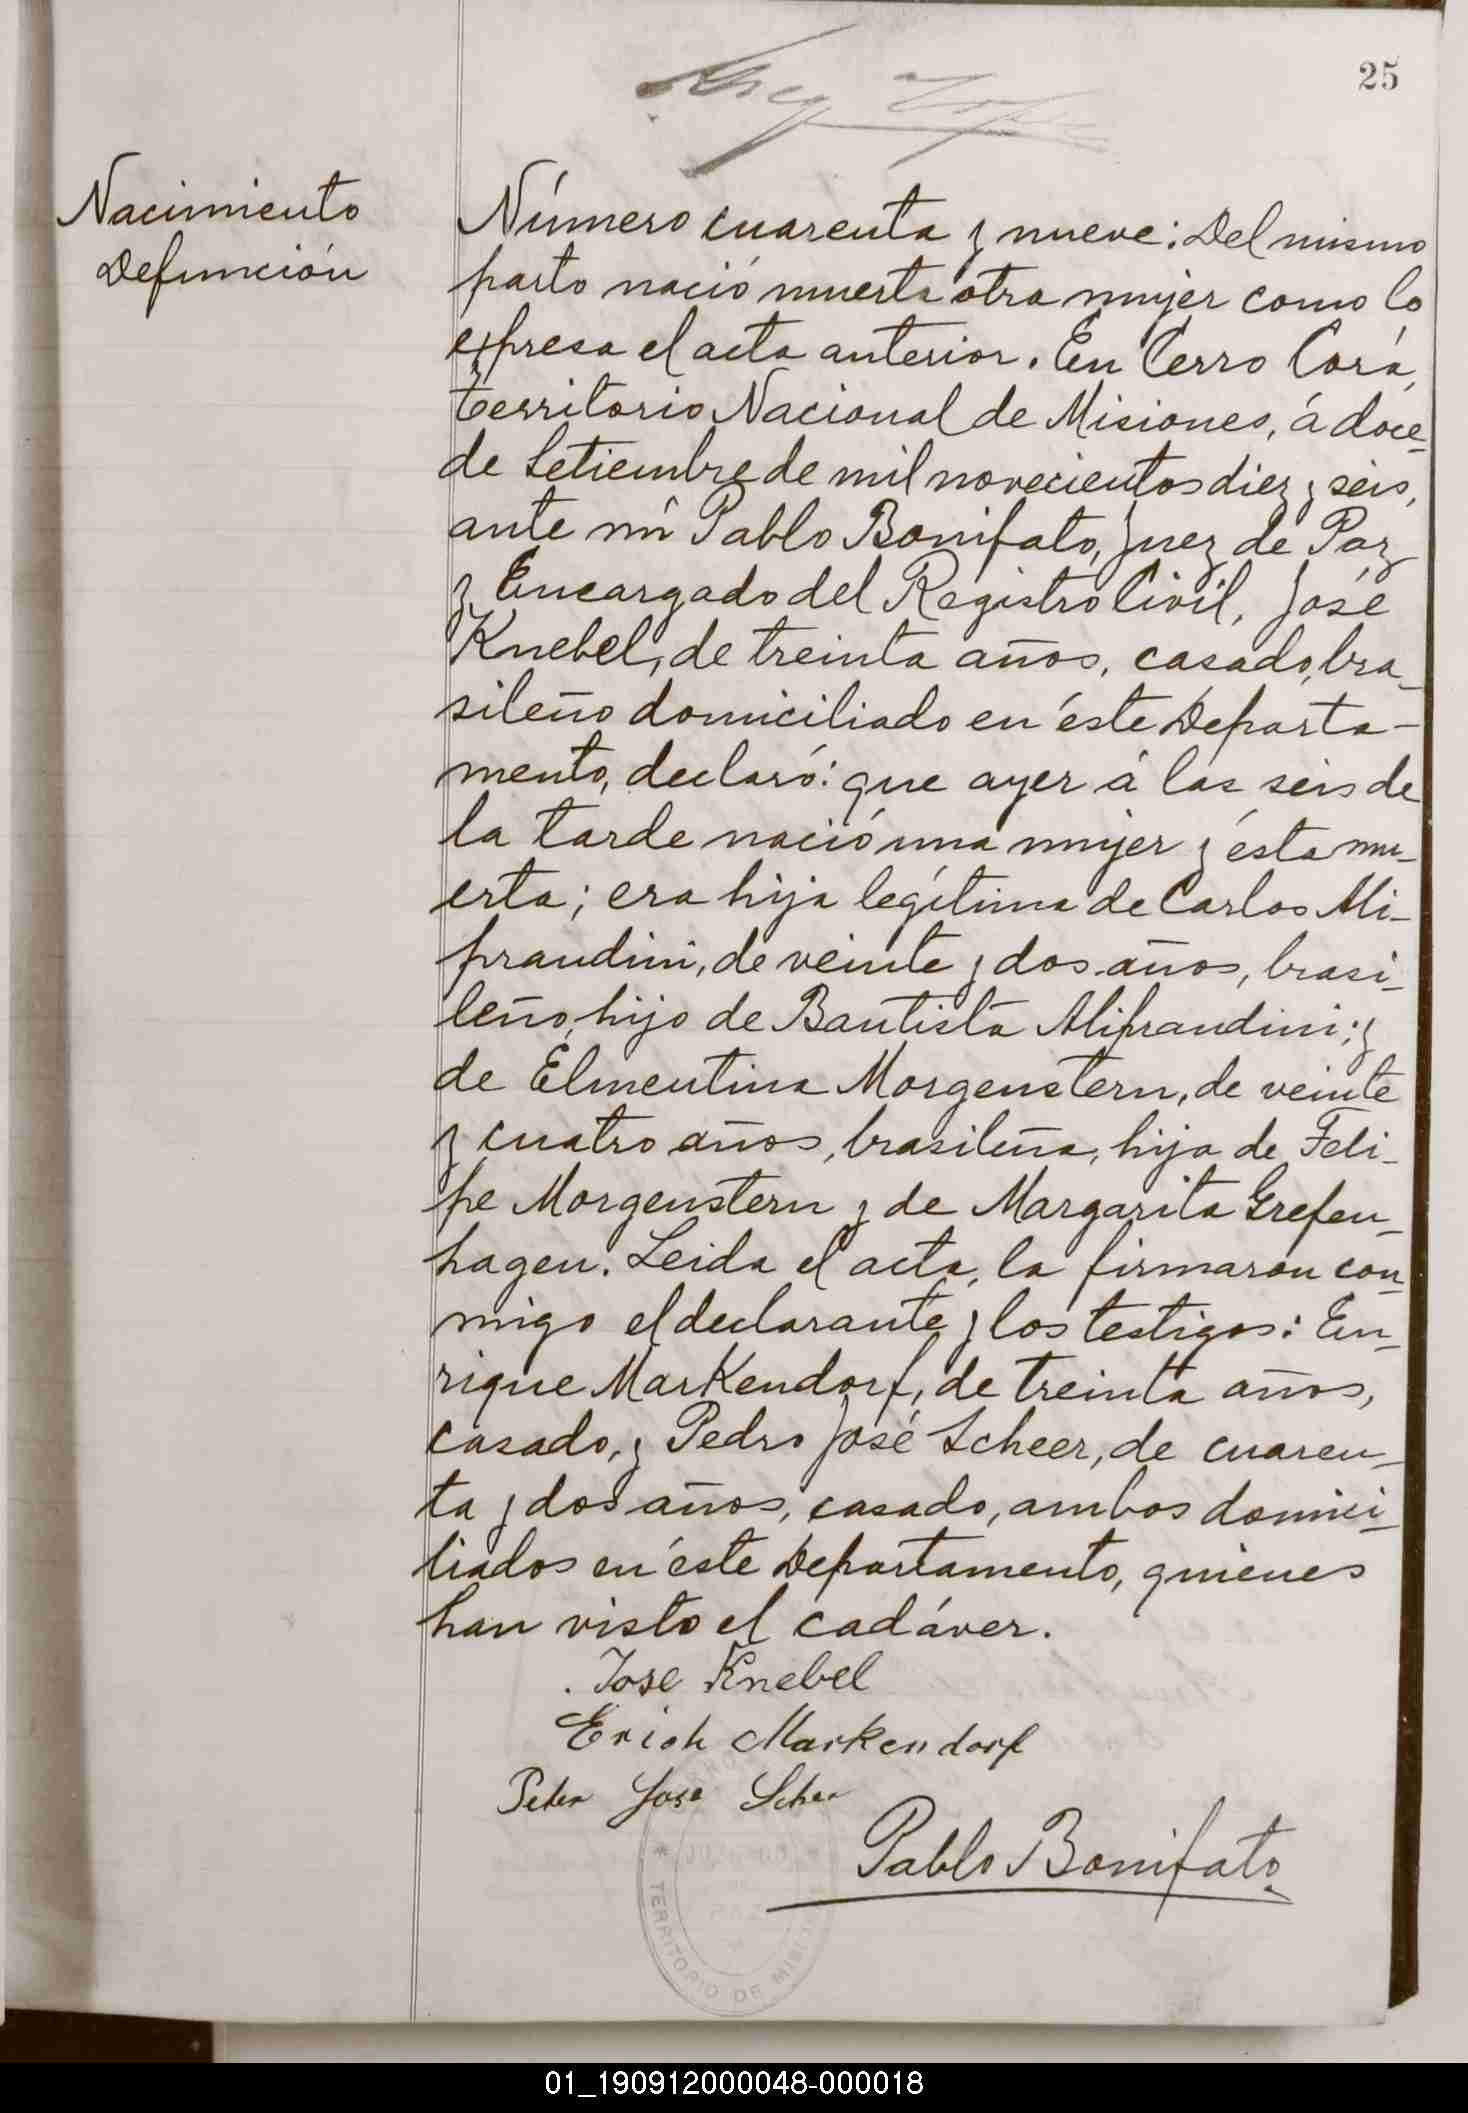 25
Nacimiento
Defunción
Número cuarenta y nueve: Del mismo
parto nació muerta otra mujer como lo
expresa el acta anterior. En Cerro Corá,
Territorio Nacional de Misiones, á doce
de Setiembre de mil novecientos diez y seis,
ante mí Pablo Bonifato, Juez de Paz
y Encargado del Registro Civil, José
Knebel, de treinta años, casado, bra-
sileño domiciliado en éste Departa-
mento, declaró: que ayer á las seis de
la tarde nació una mujer y ésta mu-
erta; era hija legítima de Carlos Ali-
prandini, de veinte y dos años, brasi-
leño, hijo de Bautista Aliprandini; y
de Elmentina Morgenstern, de veinte
y cuatro años, brasileña, hija de Feli-
pe Morgenstern y de Margarita Grefen-
hagen. Leida el acta, la firmaron con-
migo el declarante y los testigos: En-
rique Markendorf, de treinta años,
casado, y Pedro José Scheer, de cuaren-
ta y dos años, casado, ambos domici-
liados en éste Departamento, quienes
han visto el cadáver.
Jose Knebel
Erich Markendorf
Peter Jose Scher
Pablo Bonifato
TERRITORIO DE MISIONES
01_190912000048-000018